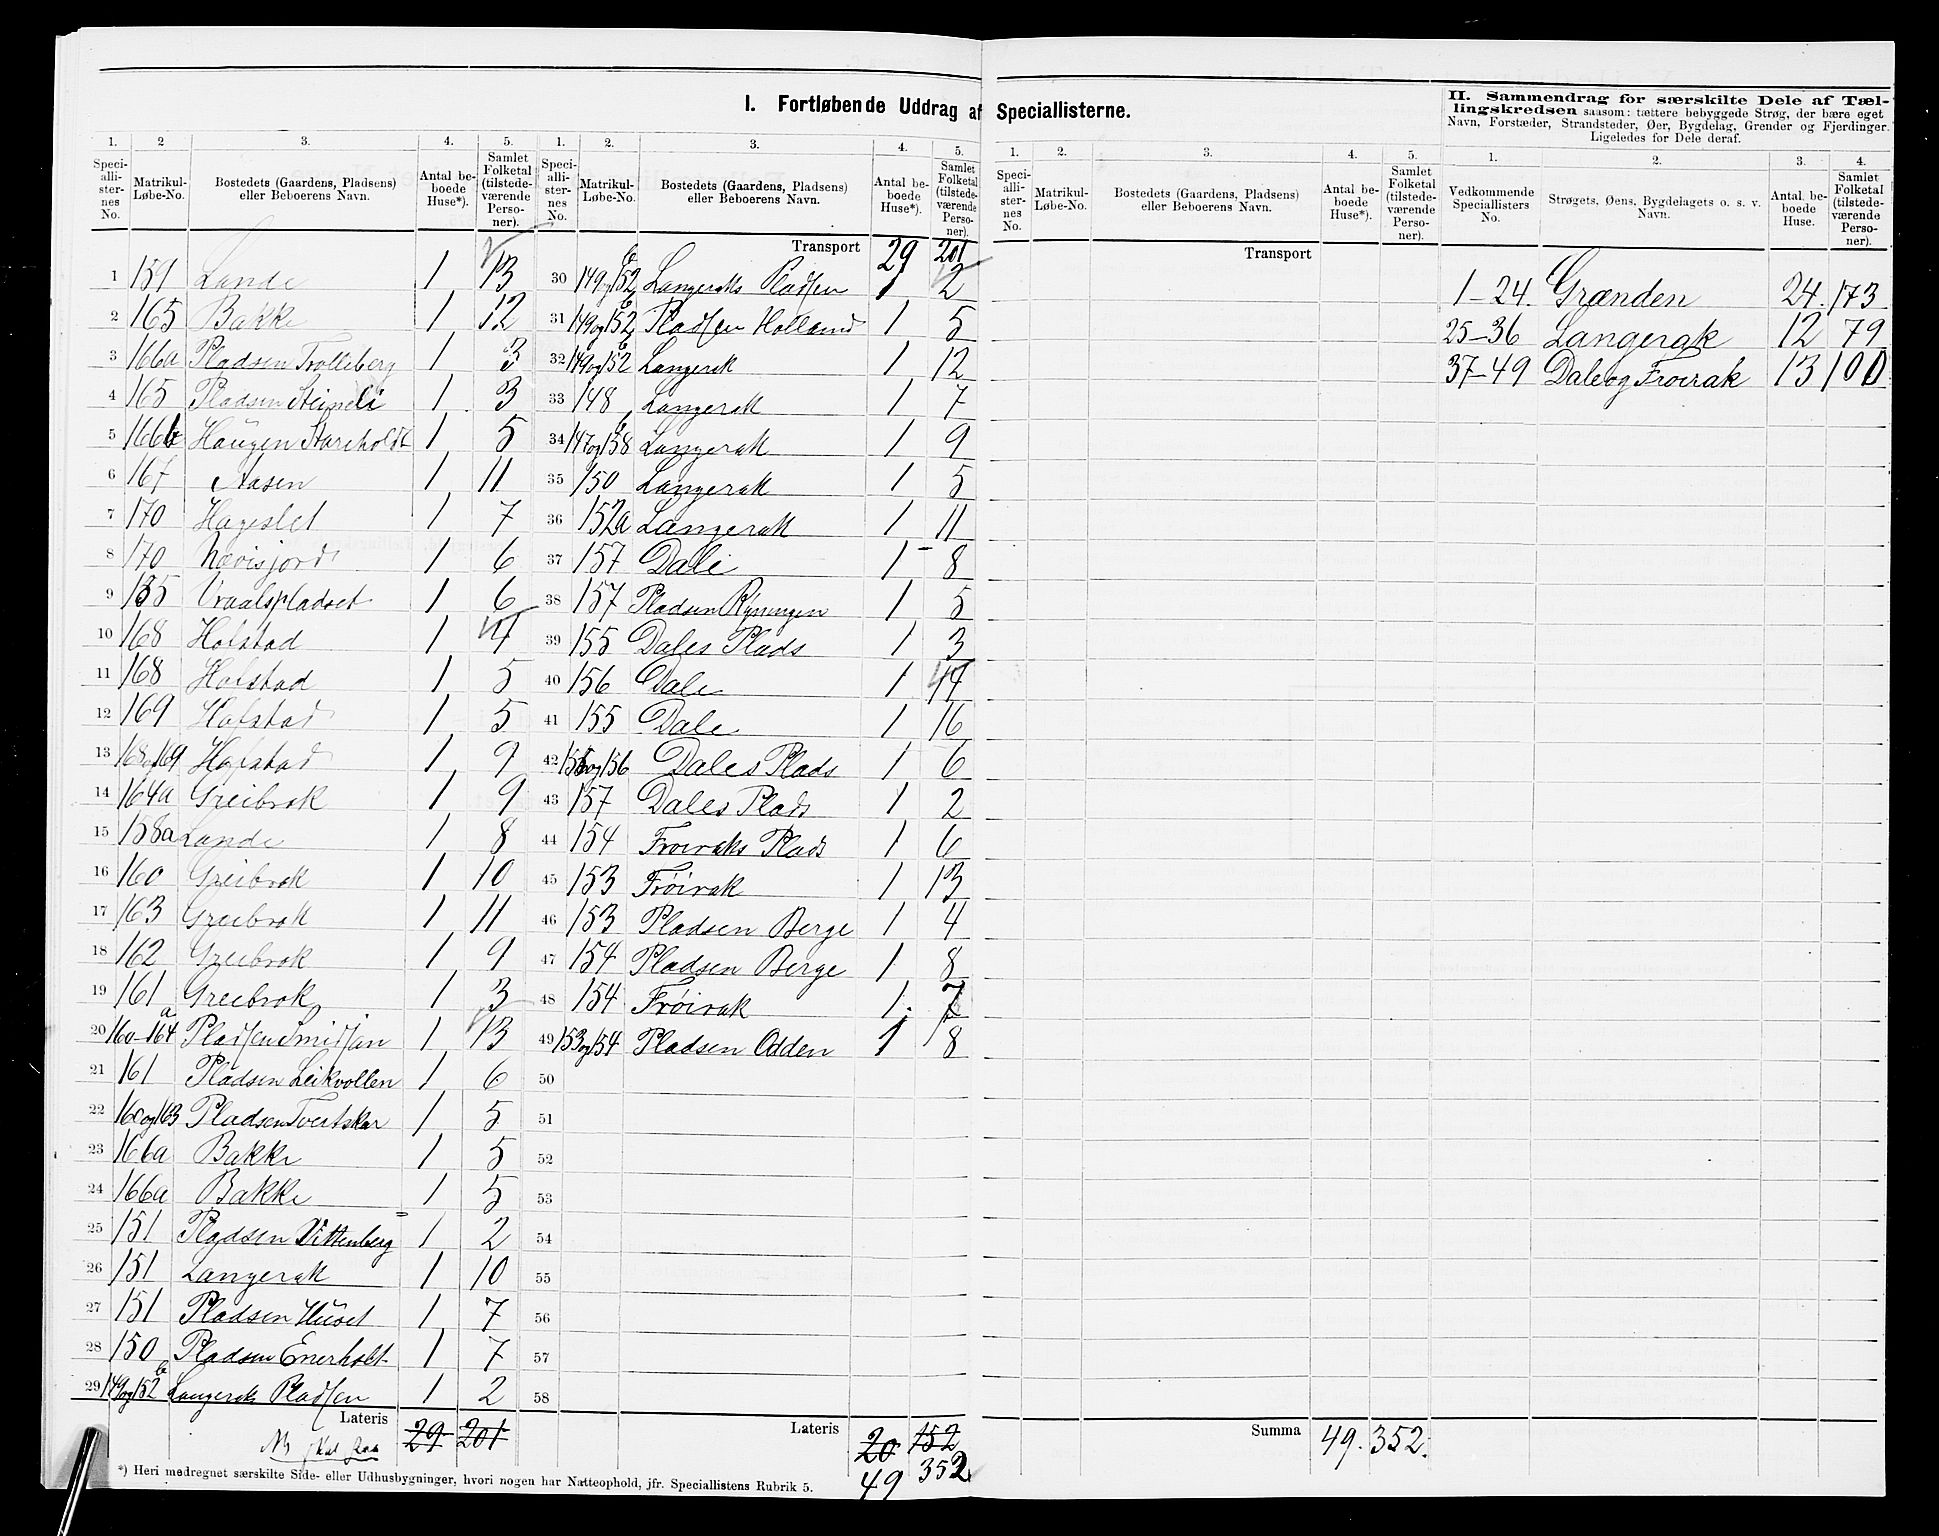 I. Fortløbende Uddrag af Speciallisterne.
II. Sammendrag for særskilte Dele af Tæl-
lingskredsen saasom: tættere bebyggede Strøg, der bære eget
Navn, Forstæder, Strandsteder, Øer, Bygdelag, Grender og Fjerdinger.
Ligeledes for Dele deraf.
1. 2 3. 4. 5. 1. 2. 3. 4. 5.
Speciallisternes No. Matrikul-Løbe-No. Bostedets (Gaardens, Pladsens) eller Beboerens Navn. Antal beboede Huse*). Samlet Folketal (tilstedeværende Personer).
Speciallisternes No. Matrikul-Løbe-No. Bostedets (Gaardens, Pladsens) eller Beboerens Navn. Antal beboede Huse*). Samlet Folketal (tilstedeværende Personer).
1 159 Lande 1 13
2 165 Bakke 1 12
3 166a Pladsen Trolleberg 1 3
4 165 Pladsen Steineli 1 3
5 166b Haugen Stareholdt 1 5
6 167 Aasen 1 11
7 170 Hageslet 1 7
8 170 Nævisjord 1 6
9 135 Vraalspladset 1 6
10 168 Hofstad 1
11 168 Hofstad 1 5
12 169 Hofstad 1 5
13 168og169 Hofstad 1 9
14 164a Greibrok 1 9
15 158a Lande 1 8
16 160 Greibrok 1 10
17 163 Greibrok 1 11
18 162 Greibrok 1 9
19 161 Greibrok 1 3
20 160-164a Pladsen Smidjan 1 13
21 161 Pladsen Leikvollen 1 6
22 160og163 Pladsen Tvertskar 1 5
23 166a Bakke 1 5
24 166a Bakke 1 5
25 151 Pladsen Vittenberg 1 2
26 151 Langerak 1 10
27 151 Pladsen Huset 1 7
28 150 Pladsen Enerholt 1 7
29 149og152b Langeraks Pladsen 1 2
Lateris 29 201
Transport 29 201
30 149og152b Langeraks Pladsen 1 2
31 149og152b Pladsen Holland 1 5
32 149og152b Langerak 1 12
33 148 Langerak 1 7
34 147og158 Langerak 1 9
35 150 Langerak 1 5
36 152a Langerak 1 11
37 157 Dale 1 8
38 157 Pladsen Ryningen 1 5
39 155 Dales Plads 1 3
40 156 Dale 1
41 155 Dale 1 16
42 155og156 Dales Plads 1 6
43 157 Dales Plads 1 2
44 154 Frøiraks Plads 1 6
45 153 Frøirak 1 13
46 153 Pladsen Berge 1 4
47 154 Pladsen Berge 1 8
48 154 Frøirak 1 7
49 153og154 Pladsen Odden 1 8
50
51
52
53
54
55
56
57
58
Lateris 20 152
49 352
*) Heri medregnet særskilte Side- eller Udhusbygninger, hvori nogen har Natteophold, jfr. Speciallistens Rubrik 5.
1. 2. 3. 4. 5.
Speciallisternes No. Matrikul-Løbe-No. Bostedets (Gaardens, Pladsens) eller Beboerens Navn. Antal beboede Huse*). Samlet Folketal (tilstedeværende Personer).
Transport
Summa 49. 352.
1. 2. 3. 4.
Vedkommende Speciallisters No. Strøgets, Øens, Bygdelagets o. s. v. Navn. Antal beboede Huse. Samlet Folketal (tilstedeværende Personer).
1-24. Grænden 24. 173
25-36 Langerak 12 79
37-49 Dale og Frøirak 13 100